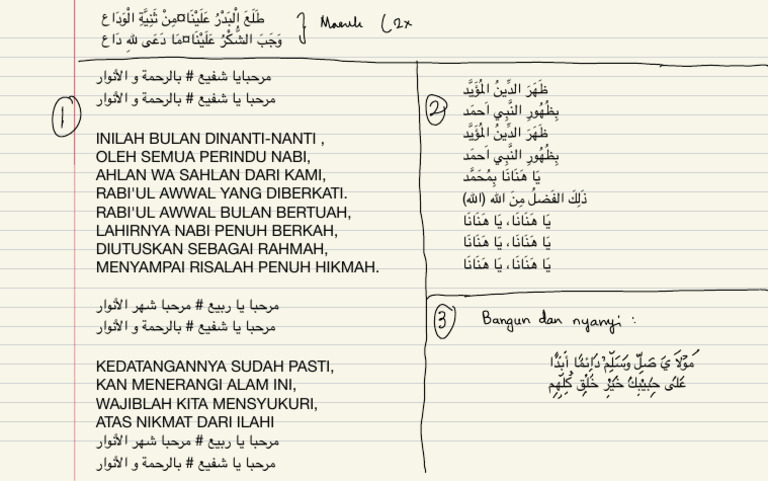 طَلَعَ الْبَدْرُ عَلَيْنَا¤مِنْ ثَنِيَّةِ الْوَدَاع
وَجَبَ الشُّكْرُ عَلَيْنَا¤مَا دَعَى للهِ دَاع
(2x
مرحبايا شفيع # بالرحمة و الأنوار
مرحبا يا شفيع # بالرحمة و الأنوار
1
INILAH BULAN DINANTI-NANTI ,
OLEH SEMUA PERINDU NABI,
AHLAN WA SAHLAN DARI KAMI,
RABI'UL AWWAL YANG DIBERKATI.
RABI'UL AWWAL BULAN BERTUAH,
LAHIRNYA NABI PENUH BERKAH,
DIUTUSKAN SEBAGAI RAHMAH,
MENYAMPAI RISALAH PENUH HIKMAH.
مرحبا يا ربيع # مرحبا شهر الأنوار
مرحبا يا شفيع # بالرحمة و الأنوار
KEDATANGANNYA SUDAH PASTI,
KAN MENERANGI ALAM INI,
WAJIBLAH KITA MENSYUKURI,
ATAS NIKMAT DARI ILAHI
مرحبا يا ربيع # مرحبا شهر الأنوار
مرحبا يا شفيع # بالرحمة و الأنوار
2
ظَهَرَ الدِّينُ المُؤَيَّد
بِظُهُورِ النَّبِي اَحمَد
ظَهَرَ الدِّينُ المُؤَيَّد
بِظُهُورِ النَّبِي اَحمَد
يَا هَنَانَا بِمُحَمَّد
ذَلِكَ الفَضلُ مِنَ الله (الله)
يَا هَنَانَا، يَا هَنَانَا
يَا هَنَانَا، يَا هَنَانَا
يَا هَنَانَا، يَا هَنَانَا
3
Bangun dan nyanyi :
مَوْلَا يَ صَلِّ وَسَلِّمْ دَائِمًا أَبَدًا
عَلَى حَبِيْبِكَ خَيْرِ خَلْقِ كُلِّهِمِ